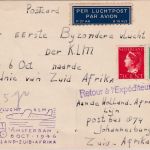 Postcard
PER LUCHTPOST
PAR AVION
Eerste Byzondere vlucht
der KLM
6 Oct naarde
Unie van Zuid Afrika
Retour à l'Expéditeur
Aande Holland Afrika
Lyn
post bus
Johannesburg
Zuid-Afrika
AMSTERDAM
6 OCT 1946
NEDERLAND-ZUID-AFRIKA